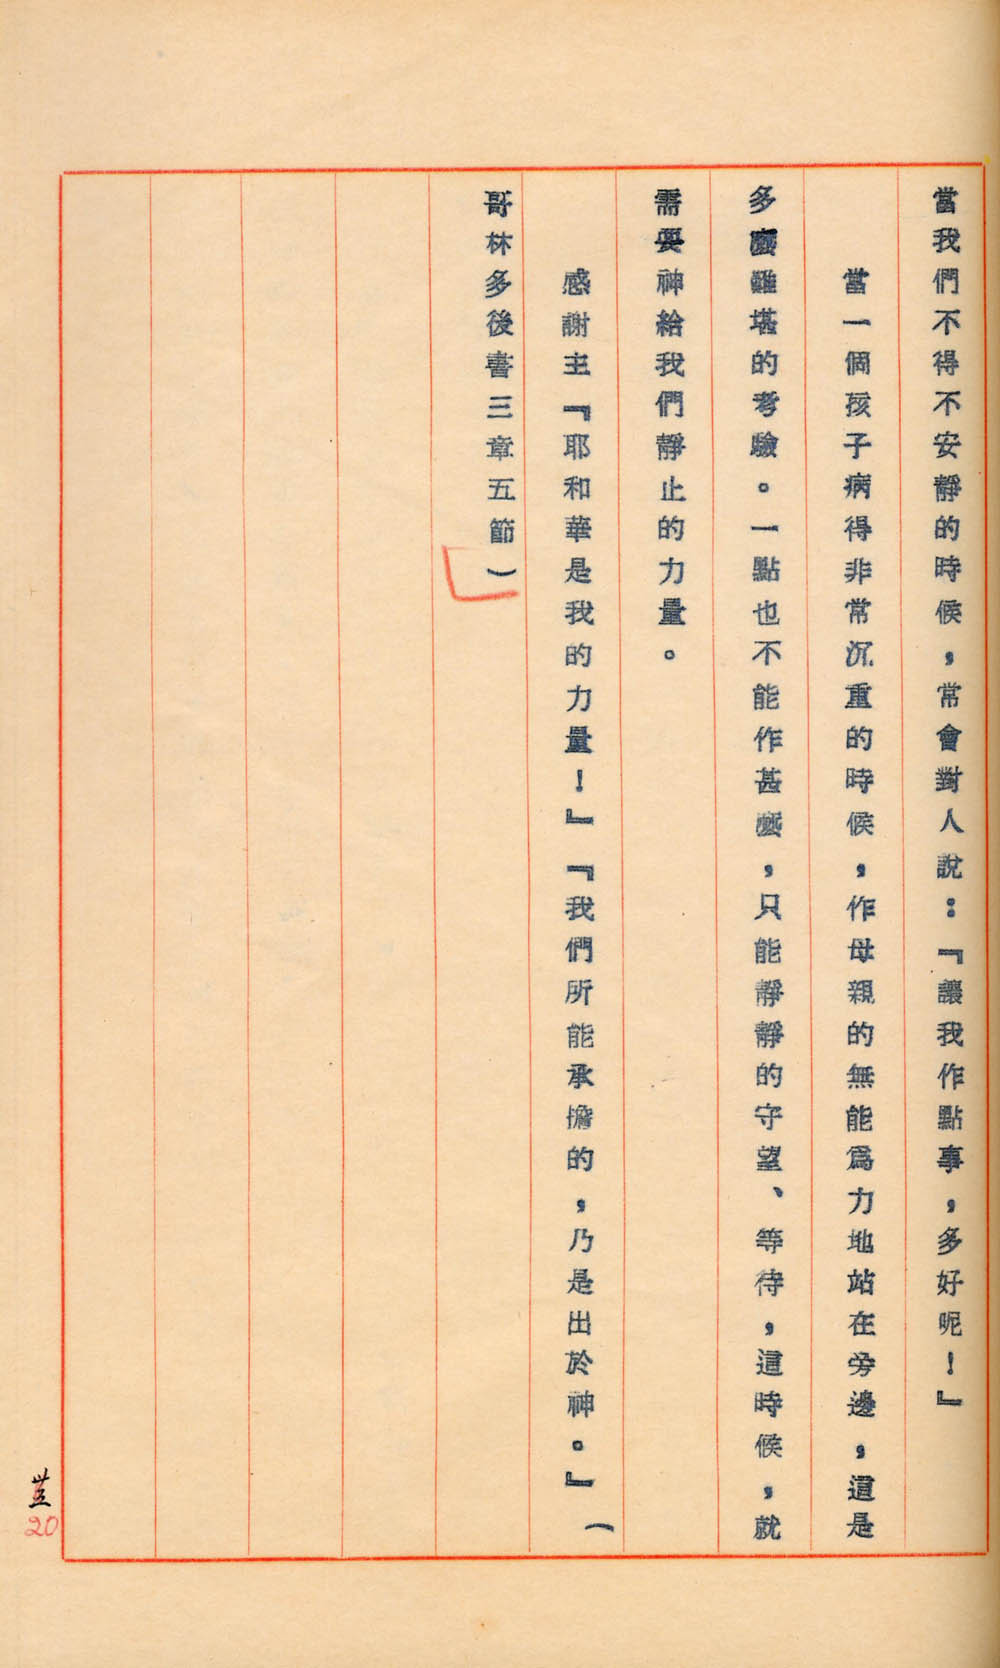 當我們不得不安靜的時候，常會對人說：『讓我作點事，多好呢！』
當一個孩子病得非常沉重的時候，作母親的無能為力地站在旁邊，這是
多麼難堪的考驗。一點也不能作甚麼，只能靜靜的守望、等待，這時候，就
需要神給我們靜止的力量。
感謝主『耶和華是我的力量！』『我們所能承擔的，乃是出於神。』（
哥林多後書三章五節）
20